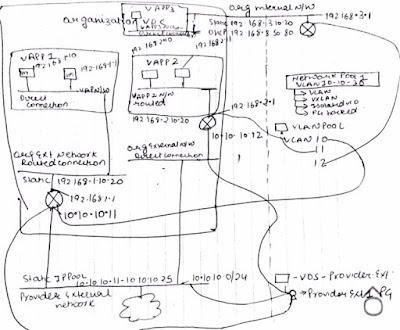 VAPP3
organization
VDC
Direct connection
org Internal N/W
Static 192.168.3.10-20
DHCP 192.168.8.50-80
192.168.3.1
VAPP 1
192.168.1.1
Direct
Connection
VAPP 2
VAPP2 N/W
routed
192.168.2.1
192.168.2.10-20
10.10.10.12
NETWORK POOL 1
VLAN 10-10-30
VLAN
VXLAN
PG backed
VLANPOOL
VLAN 10
11
12
org Ext Network
Routed connection
org External N/W
Direct connection
Static 192.168.1.10-20
192.168.1.1
10.10.10.11
Static IP Pool
10.10.10.11-10.10.10.25
10.10.10.0/24
Provider External
network
VDS-Provider Ext
Provider Ext PG